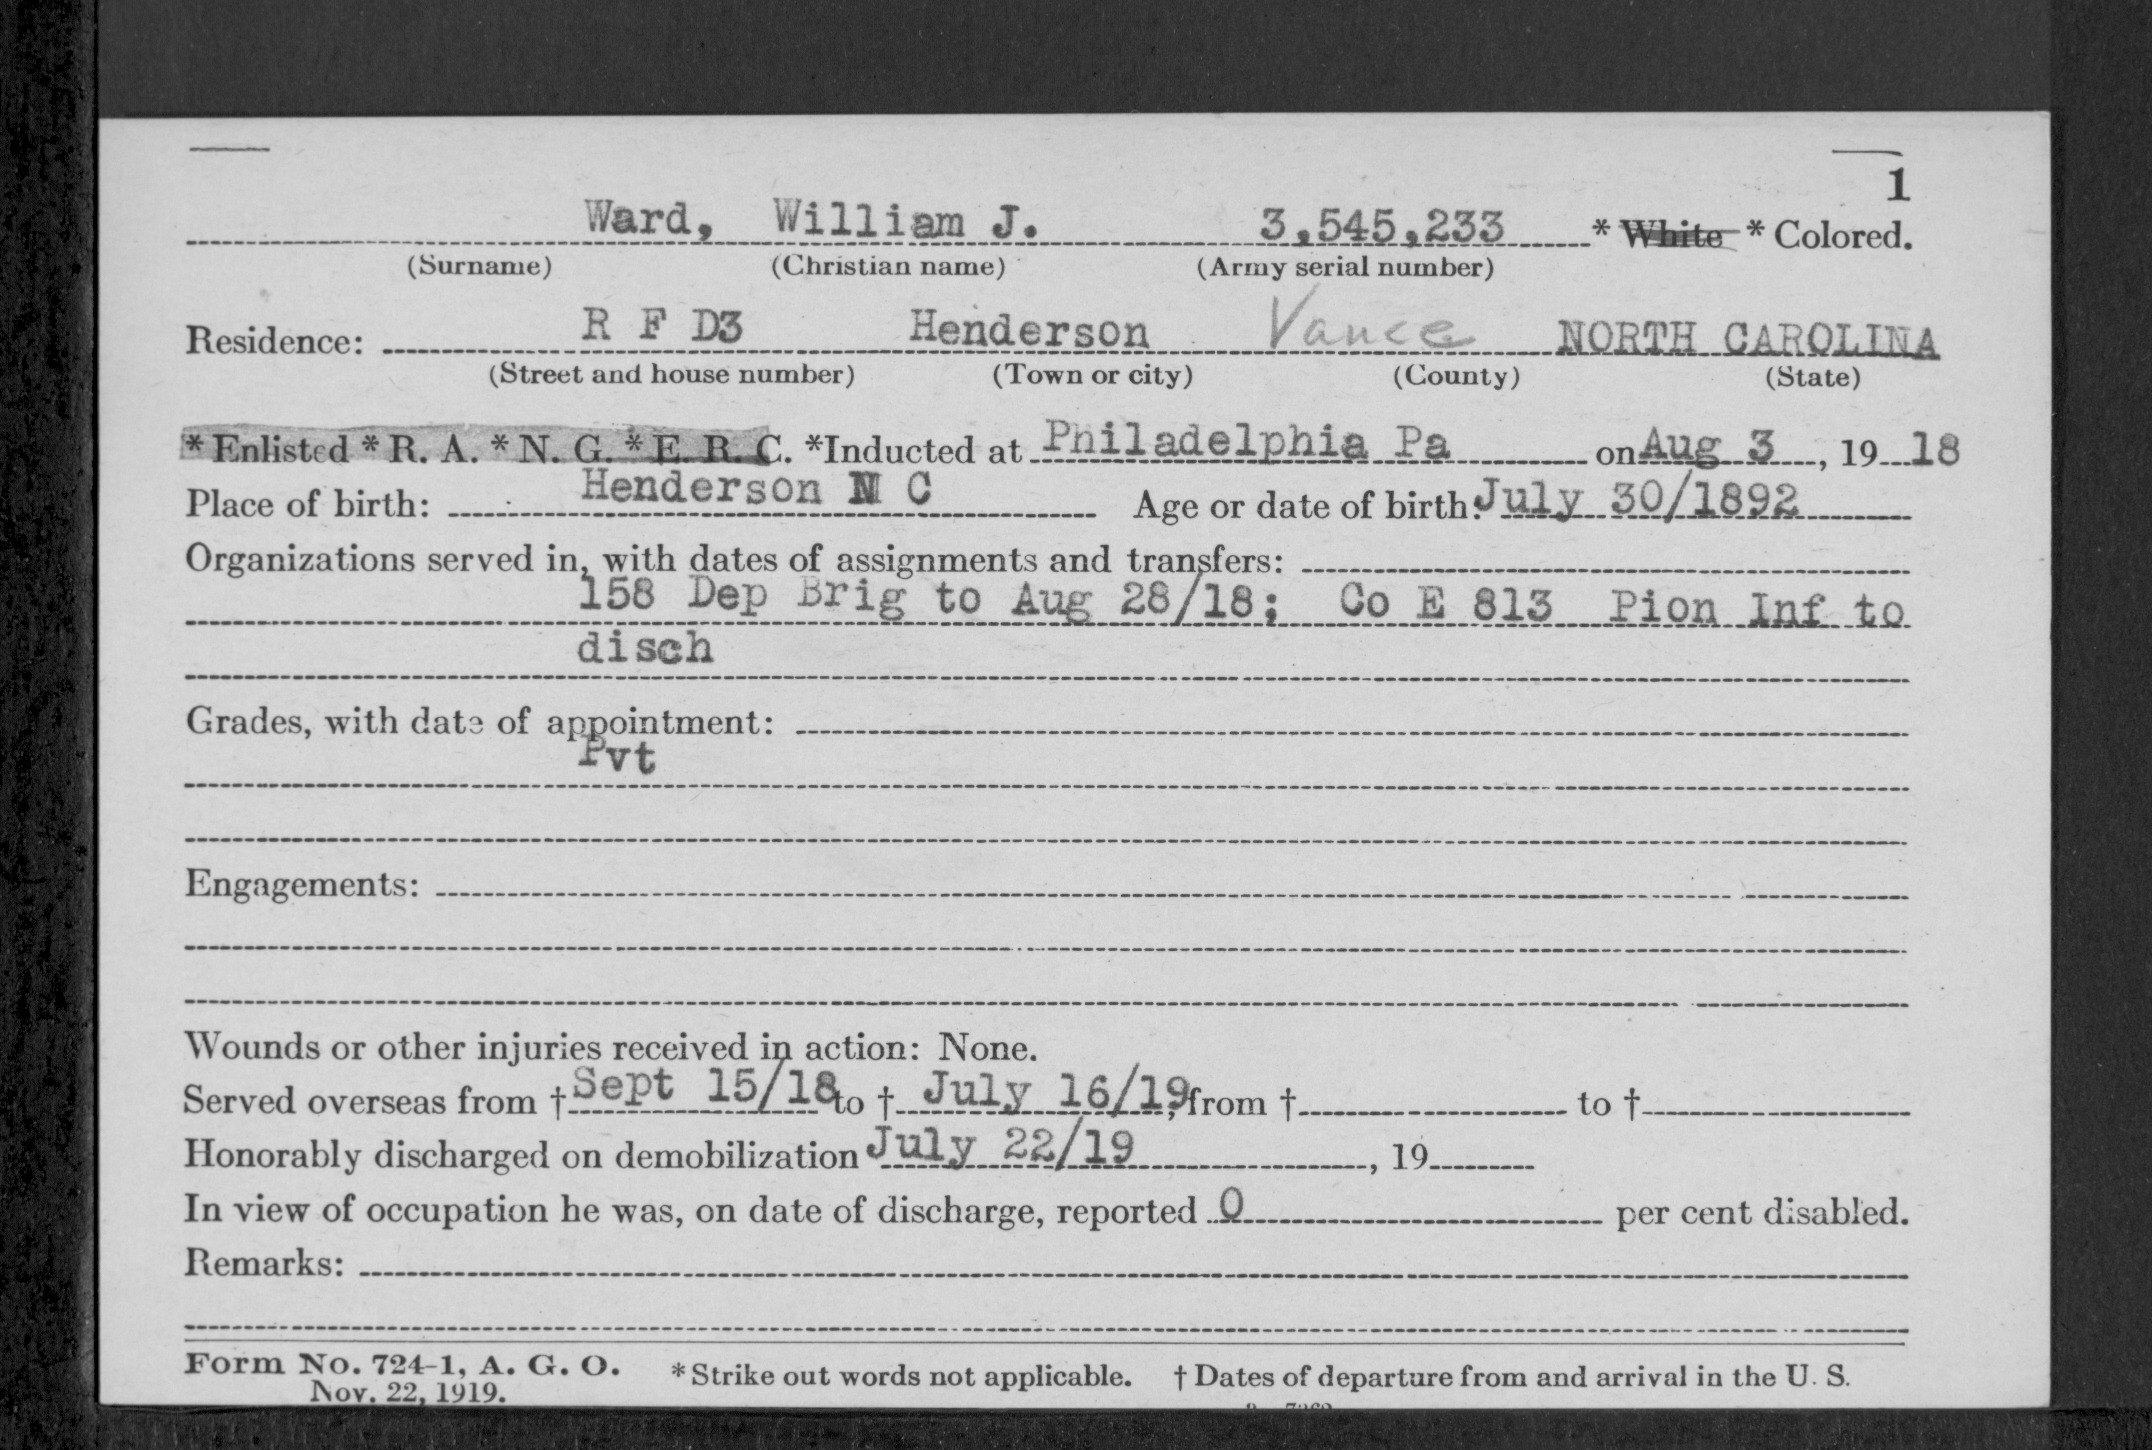 1
Ward, William J. 3,545,233 * White * Colored.
(Surname) (Christian name) (Army serial number)
Residence: R F D3 Henderson Vance NORTH CAROLINA
(Street and house number) (Town or city) (County) (State)
* Enlisted * R. A. * N. G. * E. R. C. *Inducted at Philadelphia Pa on Aug 3, 19 18
Place of birth: Henderson N C Age or date of birth: July 30/1892
Organizations served in, with dates of assignments and transfers:
158 Dep Brig to Aug 28/18; Co E 813 Pion Inf to
disch
Grades, with date of appointment:
Pvt
Engagements:
Wounds or other injuries received in action: None.
Served overseas from † Sept 15/18 to † July 16/19, from † to †
Honorably discharged on demobilization July 22/19, 19
In view of occupation he was, on date of discharge, reported 0 per cent disabled.
Remarks:
Form No. 724-1, A. G. O. * Strike out words not applicable. † Dates of departure from and arrival in the U. S.
Nov. 22, 1919.